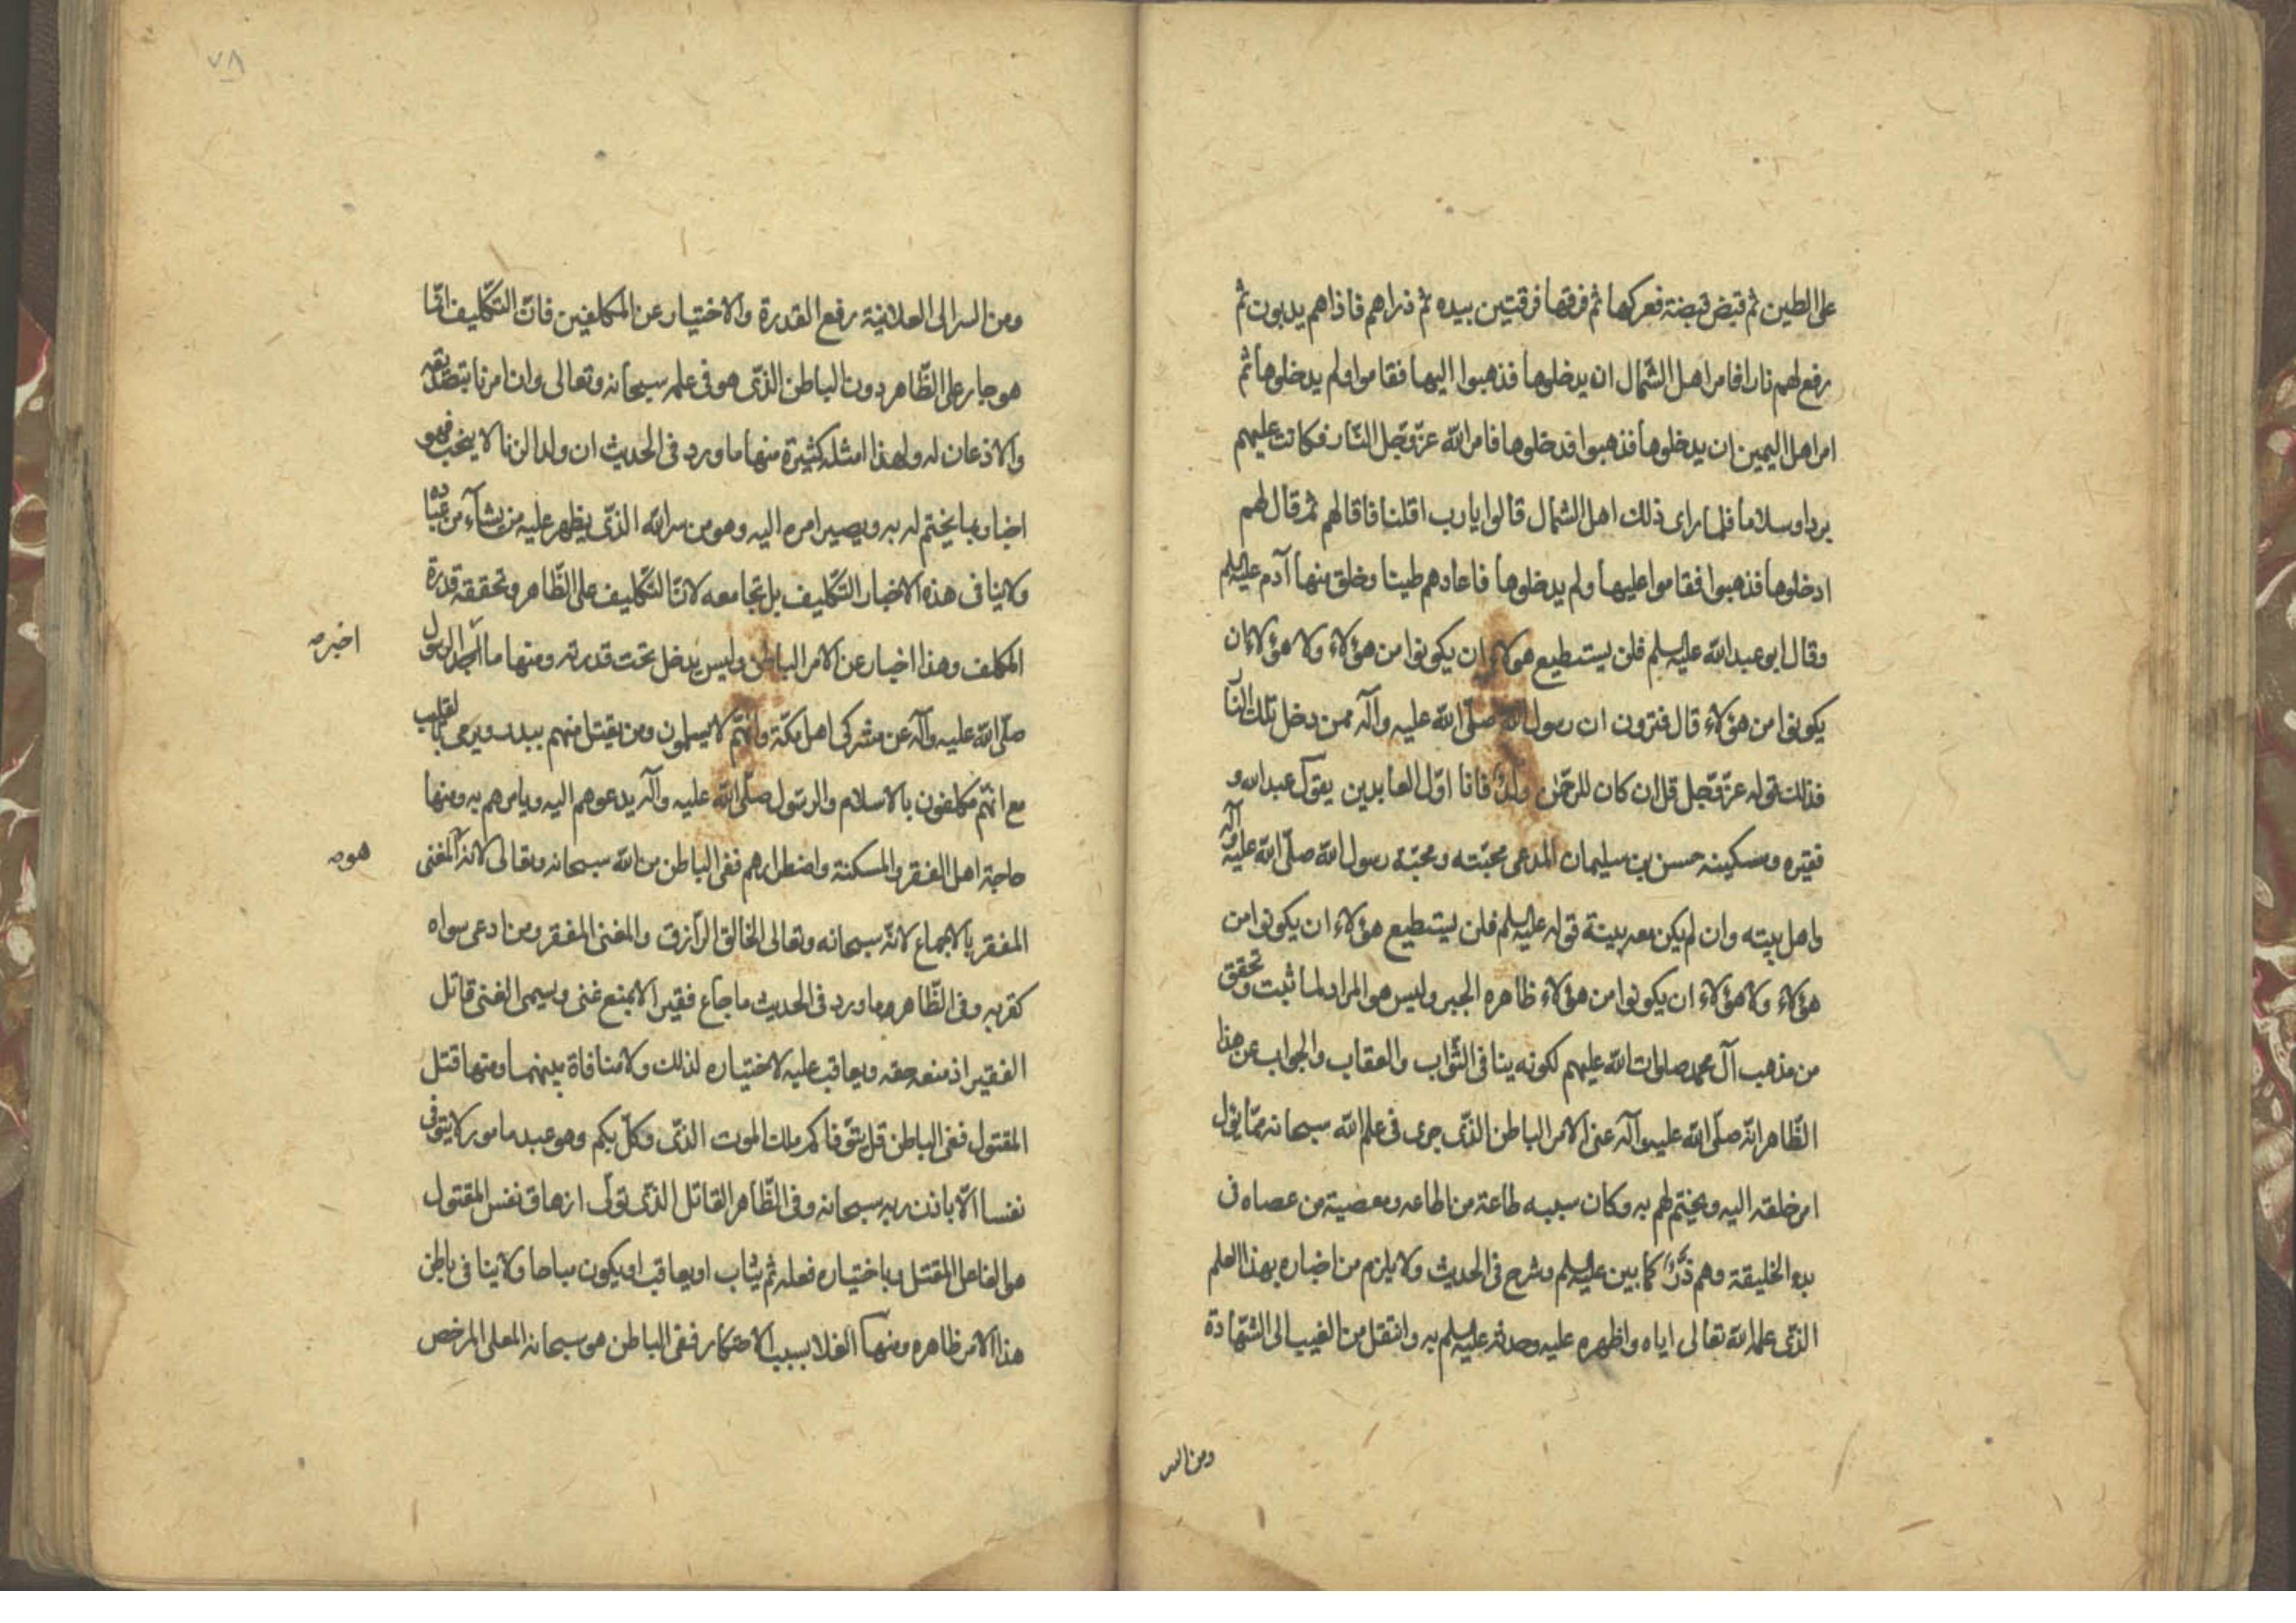 على الطين ثم قبض قبضة فعركها ثم فرقها فرقتين بيده ثم ذراهم فاذا هم يدبون ثم
رفع لهم نارا فامر اهل الشمال ان يدخلوها فذهبوا اليها فقاموا ولم يدخلوها ثم
امر اهل اليمين ان يدخلوها فذهبوا فدخلوها فامر الله عزّ وجّل النّار فكانت عليهم
بردا وسلاما فلما راى ذلك اهل الشمال قالوا يا رب اقلنا فاقالهم ثم قال لهم
ادخلوها فذهبوا فقاموا عليها ولم يدخلوها فاعادهم طينا وخلق منها آدم عليه السلم
وقال ابو عبد الله عليه السلم فلن يستطيع هولاء ان يكونوا من هؤلاء ولا هؤلاء ان
يكونوا من هؤلاء قال فترون ان رسول الله صلّى الله عليه وآله ممن دخل تلك النّار
فذلك قوله عزّ وجّل قل ان كان للرحمن ولد فانا اوّل العابدين يقول عبد الله و
فقيره ومسكينه حسن بن سليمان المدعى محبّته ومحبّة رسول الله صلّى الله عليه وآله
واهل بيته وان لم يكن معه بينة قوله عليه السلم فلن يستطيع هؤلاء ان يكونوا من
هؤلاء ولا هؤلاء ان يكونوا من هؤلاء ظاهره الجبر وليس هو المراد لما ثبت وتحقق
من مذهب آل محمد صلوات الله عليهم لكونه ينافى الثّواب والعقاب والجواب عن هذا
الظّاهر انّه صلّى الله عليه وآله عنى الامر الباطن الذّى جرى فى علم الله سبحانه ممّا يؤل
امر خلقه اليه ويختم لهم به وكان سببه طاعة من اطاعه ومعصية من عصاه فى
بدء الخليقة وهم ذرّ كما بين عليه السلم وشرح فى الحديث ولا يلزم من اخباره بهذا العلم
الذّى علمه الله تعالى اياه واظهره عليه وحدثه عليه السلم به وانتقل من الغيب الى الشّهادة
ومن السر
٧٨
ومن السر الى العلانية رفع القدرة والاختيار عن المكلفين فانّ التّكليف انّما
هو جار على الظّاهر دون الباطن الذّى هو فى علمه سبحانه وتعالى وان امرنا بتصديقه
والاذعان له ولهذا امثلة كثيرة منها ما ورد فى الحديث ان ولد الزنا لا ينجب فهو
اخبار بما يختم له به ويصير امره اليه وهو من سر الله الذّى يظهر عليه من يشآء من عباده
ولاينافى هذه الاخبار التّكليف بل تجامعه لانّ التّكليف على الظّاهر وتحققه قدرة
المكلف وهذا اخبار عن الامر الباطن وليس يدخل تحت قدرته ومنها ما اخبر الرسول
اخبر صه
صلّى الله عليه وآله عن مشركى اهل مكّة وانّهم لا يسلمون ومن يقتل منهم ببدر ويرمى بالقليب
مع انّهم مكلفون بالاسلام والرسّول صلّى الله عليه وآله يدعوهم اليه ويامرهم به ومنها
حاجة اهل الفقر والمسكنة واضطرارهم ففى الباطن من الله سبحانه وتعالى لانه المغنى
هو صه
المفقر بالاجماع لانّه سبحانه وتعالى الخالق الرّازق والمغنى المفقر ومن ادعى سواه
كفر به وفى الظّاهر ما ورد فى الحديث ما جاع فقير الا بمنع غنى ويسمى الغنى قاتل
الفقير اذ منعه حقه ويعاقب عليه لاختياره لذلك ولا منافاة بينهما ومنها قتل
المقتول ففى الباطن قل يتوّفاكم ملك الموت الذّى وكلّ بكم وهو عبد مامور لا يتوفى
نفسا الّا باذن ربه سبحانه وفى الظّاهر القاتل الذّى تولّى ازهاق نفس المقتول
هو الفاعل للقتل وباختياره فعله ثم يثاب او يعاقب او يكون مباحا ولاينافى باطن
هذا الامر ظاهره ومنها الغلا بسبب الاحتكار ففى الباطن هو سبحانه المغلى المرخص